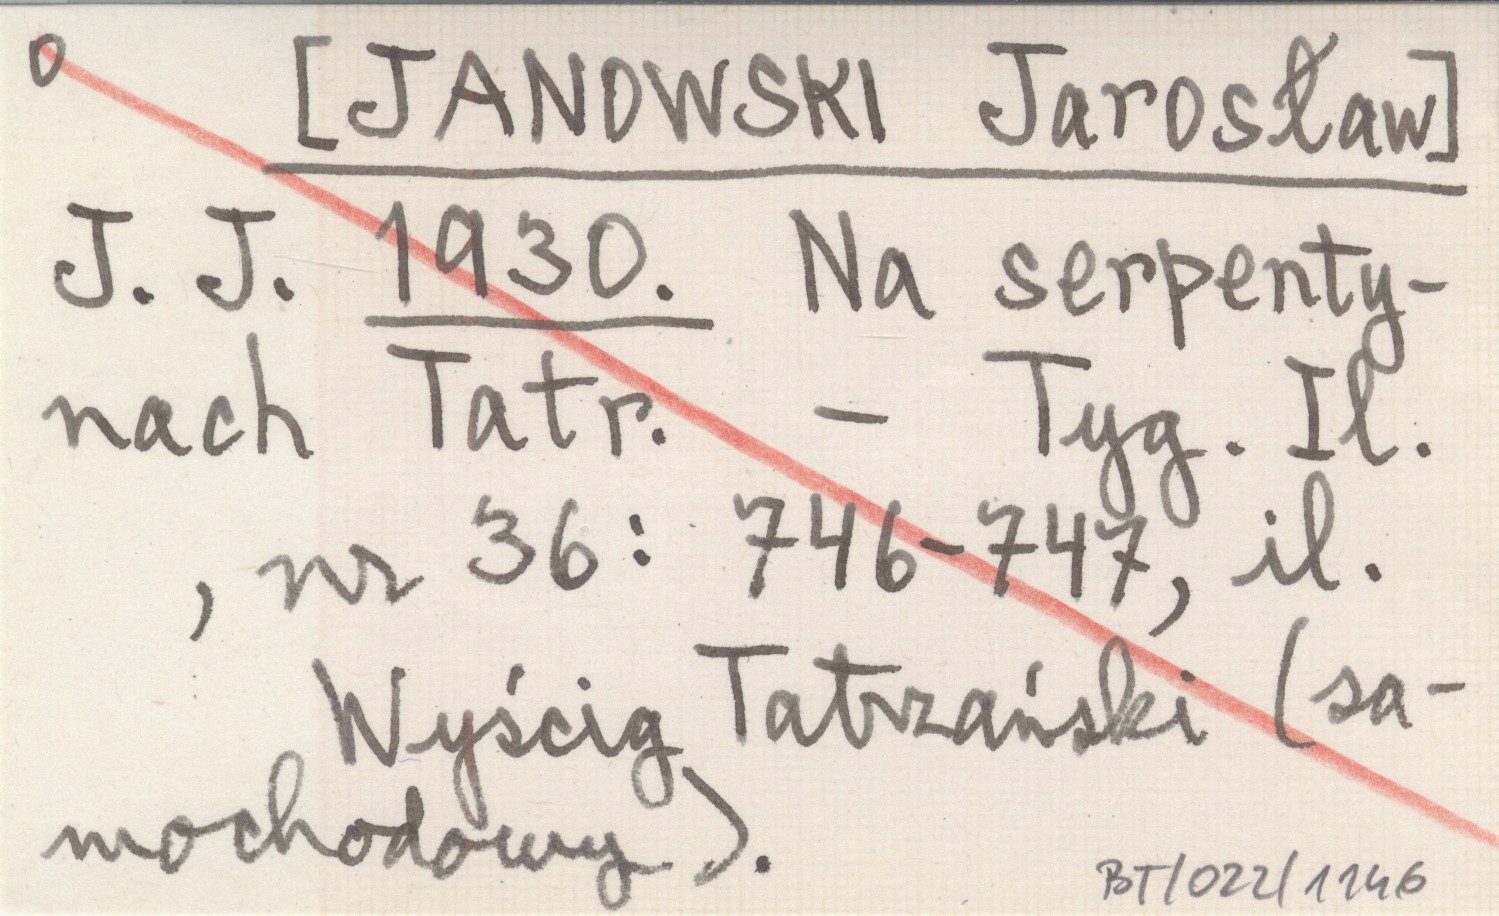 0 [JANOWSKI Jarosław]
J. J. 1930. Na serpenty-
nach Tatr. - Tyg. Il.
, nr 36: 746-747, il.
Wyścig Tatrzański (sa-
mochodowy).
BT/022/1146